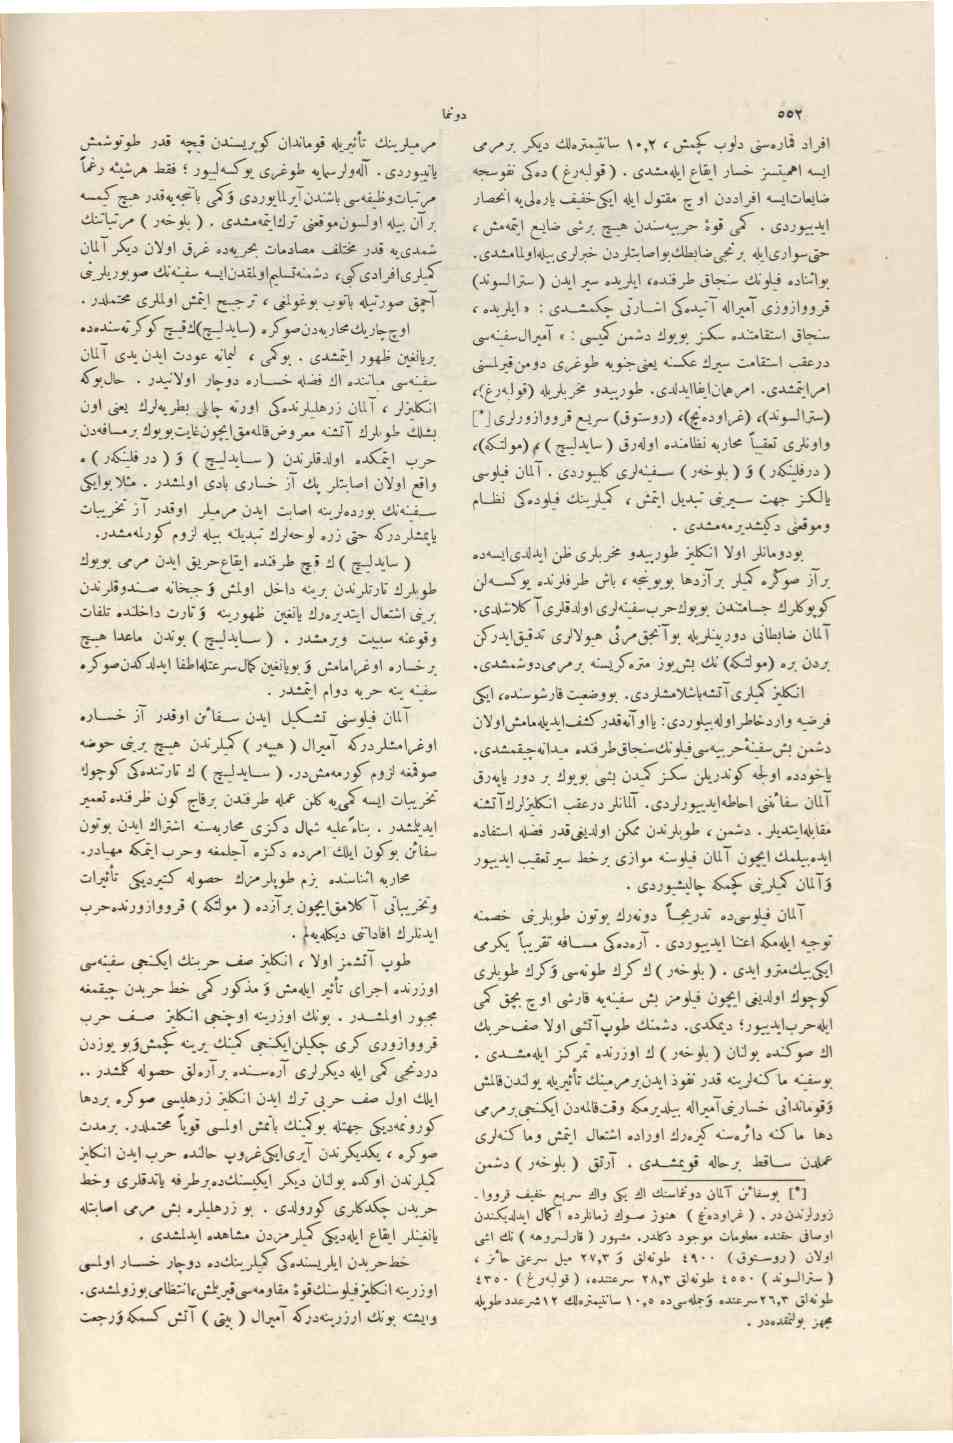 ٥٥٢
دونما
افراد قماره‌سنی دلوب كچمش ، ١٠,٢ سانتیمتره‌لك دیكر برمرمی
ایسه اهمیتسز خسار ایقاع ایله‌مشدی . ( قولبه‌رغ ) ده‌كی نفوسجه
ضایعات‌ایسه افراددن اوچ مقتول ایله ایكی‌خفیف یاره‌لی‌یه انحصار
ایدییوردی . كمی قوۀ حربیه‌سندن هیچ برشی ضایع ایتمه‌مش ،
حتی‌سواری‌ایله برنجی‌ضابطك‌بواصابتلردن خبرلری‌بیله‌اولمامشدی.
بواثناده فیلونك سنجاق طرفنده، ایلریده سیر ایدن (سترالسوند)
قرووازوزی آمیراله آتیده‌كی اشارتی چكمشدی : « ایلریده ،
سنجاق استقامتنده سكز بویوك دشمن كمیسی : » آمیرال‌سفینه‌سی
درعقب استقامت سیرك عكسنه یعنی‌جنوبه طوغری دومن‌قیرلمسنی
امرایتمشدی. امرهمان‌ایفاایدلدی. طورپیدو مخربلریله (قولبه‌رغ)،
(سترالسوند)، (غراوده‌نچ)، (روستوق) سریع قرووازورلری[*]
واونلری تعقیباً محاربه نظامنده اوله‌رق (سایدلیچ) ، (مولتكه)،
(درفلینكر) و (بلوخه‌ر) سفینه‌لری كلییوردی . آلمان فیلوسی
یالكز جهت سیرینی تبدیل ایتمش ، كمیلرینك فیلوده‌كی نظام
وموقعنی دكیشدیرمه‌مشدی .
بودومانلر اولا انكلیز طورپیدو مخربلری ظن ایدلدی‌ایسه‌ده
برآز صوكره كمیلر برآزدها بویونجه ، باش طرفلرنده یوكسه‌لن
كوپوكلرك جسامتندن بویوك‌حرب‌سفینه‌لری اولدقلری آكلاشلدی.
آلمان ضابطانی دوربینلریله بوآنجق‌مرئی هیولالری تدقیق‌ایدركن
بردن بره (مولتكه) نك بش‌یوز متره‌كریسنه برمرمی‌دوشمشدی.
انكلیز كمیلری آتشه‌باشلامشلردی. بووضعیت قارشوسنده، ایكی
فرضیه واردخاطراوله‌بیلوردی: یااوآنه‌قدركشف‌ایدیله‌مامش‌اولان
دشمن بش‌سفینۀحربیه‌سی‌فیلونك‌سنجاق‌طرفنده میدانه‌چیقمشدی.
یاخودده اولجه كوندریلن سكز كمیدن بشی بویوك بر دور یاپه‌رق
آلمان سفائننی احاطه‌ایدییورلردی. آلمانلر درعقب انكلیزلرك‌آتشنه
مقابله‌ایتدیلر . دشمن ، طوپلرندن ممكن اولدیغی‌قدر فضله استفاده
ایده‌بیلمك ایچون آلمان فیلوسنه موازی برخط سیر تعقیب ایدییور
وآلمان كمیلرینی كچمكه چالیشیوردی .
آلمان فیلوسی‌ده تدریجاً دونه‌رك بوتون طوپلرینی خصمنه
توجیه ایله‌مكه اعتنا ایدییوردی . آره‌ده‌كی مسافه تقریباً یكرمی
ایكی‌بیك‌مترو ایدی . (بلوخه‌ر) ك كرك طونه‌سی وكرك طوپلری
كوچوك اولدیغی ایچون فیلومز بش سفینه‌یه قارشی اوچ بچق كمی
ایله‌حرب‌ایدییور؛ دیمكدی. دشمنك طوپ‌آتشی اولا صف‌حربك
اك صوكنده بولنان (بلوخه‌ر) ك اوزرنده تمركز ایله‌مشدی .
بوسفینه ماكنه‌لرینه قدر نفوذ ایدن‌برمرمینك تأثیریله یولندن‌قالمش
وقوماندانی خسارینی‌آمیراله بیلدیرمكه وقت‌قالمه‌دن ایكنجی‌برمرمی
دها ماكنه دائره‌سنه كیره‌رك اوراده اشتعال ایتمش وماكنه‌لری
عملدن ساقط برحاله قویمشدی . آرتق (بلوخه‌ر) دشمن
[*] بوسفائن آلمان دونماسنك اك یكی واك سریع خفیف قرووا-
زورلرندن در . (غراوده‌نچ) هنوز صوك زمانلرده اكمال ایدلدیكندن
اوصافی حقنده معلومات موجود دكلدر. مشهور (قارلسروهه) نك اشی
اولان (روستوق) ٤٩٠٠ طونه‌لق و ٢٧,٣ میل سرعتی حائز ،
(سترالسوند) ٤٥٥٠ طونه‌لق ٢٨,٣ سرعتنده، (قولبه‌رغ) ٤٣٥٠
طونه‌لق ٢٦,٣سرعتده وجمله‌سی‌ده ١٠,٥ سانتیمتره‌لك ١٢شرعدد طوپله
مجهز بولنمقده‌در .
مرمیلرینك تأثیریله قوماندان كوپریسندن قیچه قدر طوتوشمش
یانییوردی . آلهولرسمایه طوغری یوكسه‌لییور ؛ فقط هرشیئه رغماً
مرتبات‌وظیفه‌سی باشندن‌آیرلمایوردی وكمی باتنجه‌یه‌قدر هیچ كیمسه
برآن بیله اولسون‌موقعنی ترك‌ایتمه‌مشدی . (بلوخه‌ر) مرتباتنك
شمدی‌یه قدر مختلف مصادمات بحریه‌ده غرق اولان دیكر آلمان
كمیلری‌افرادی‌كبی، دشمنه‌تسلیم‌اولمقدن‌ایسه سفینه‌نك صوبوریلرینی
آچمق صورتیله باتوب بوغولمغی ، ترجیح ایتمش اولملری محتملدر.
اوچ‌چاریك‌محاربه‌دن‌صوكره (سایدلیچ)ك‌قیچ‌كوكرته‌سنده‌ده
بریانغین ظهور ایتمشدی . بوكمی ، لیمانه عودت ایدن یدی آلمان
سفینه‌سی میاننده اك فضله خساره دوچار اولانیدر . حال‌بوكه
انكلیزلر ، آلمان زرهلیلرنده‌كی اورته چاپلی بطریه‌لرك یعنی اون
بشلك طوپلرك آتشنه معروض‌قالمه‌مق‌ایچون‌غایت‌بویوك برمسافه‌دن
حرب ایتمكده اولدقلرندن (سایدلیچ) و (درفلینكر) ه
واقع اولان اصابتلر پك آز خساری بادی اولمشدر . مثلا بوایكی
سفینه‌نك بورده‌لرینه اصابت ایدن مرمیلر اوقدر آز تخریبات
یاپمشلردركه حتی زره لوحه‌لرك تبدیلنه بیله لزوم كورلمه‌مشدر.
(سایدلیچ) ك قیچ طرفنده ایقاع‌حریق ایدن مرمی بویوك
طوپلرك تارتلرندن برینه داخل اولمش و جبخانه صندوقلرندن
برینی اشتعال ایتدیره‌رك یانغین ظهورینه و تارت داخلنده تلفات
وقوعنه سببیت ویرمشدر . (سایدلیچ) بوندن ماعدا هیچ
برخساره اوغرامامش و بویانغین كمال‌سرعتله‌اطفا ایدلدكدن‌صوكره
سفینه ینه حربه دوام ایتمشدر .
آلمان فیلوسنی تشكیل ایدن سفائن اوقدر آز خساره
اوغرامشلردركه آمیرال (هیپه‌ر) كمیلرندن هیچ برینی حوضه
صوقمغه لزوم كورمه‌مش‌در. (سایدلیچ) ك تارتنده‌كی كوچوك
تخریبات ایسه كمی‌یه كلن عمله طرفندن برقاچ كون ظرفنده تعمیر
ایدیلمشدر . بناءً علیه شمال دكزی محاربه‌سنه اشتراك ایدن بوتون
سفائن بوكون ایلك امرده دكزه آچلمغه وحرب ایتمكه مهیادر.
محاربه اثناسنده بزم طوپلرمزك حصوله كتیردیكی تأثیرات
وتخریباتی آكلامق‌ایچون برآزده (مولتكه) قرووازورنده‌حرب
ایدنلرك افاداتنی دیكله‌یه‌لم .
طوپ آتشمز اولا ، انكلیز صف حربنك ایكنجی سفینه‌سی
اوزرنده اجرای تأثیر ایله‌مش و مذكور كمی خط حربدن چیقمغه
مجبور اولمشدر . بونك اوزرینه اوچنجی انكلیز صف حرب
قرووازوری كری چكیلن‌ایكنجی كمینك یرینه كچمش‌وبو یوزدن
دردنجی كمی ایله دیكرلری آره‌سنده برآره‌لق حصوله كلمشدر ..
ایلك اول صف حربی ترك ایدن انكلیز زرهلیسی صوكره بردها
كورونمه‌دیكی جهتله بوكمینك باتمش اولمسی قویاً محتملدر. برمدت
صوكره ، یكدیكرندن آیری‌ایكی‌غروپ حالنده حرب ایدن انكلیز
كمیلرندن اوكده بولنان دیكر ایكیسنك‌ده‌برطرفه یاتدقلری وخط
حربدن چكدكلری كورولدی . بو زرهلیلره بش مرمی اصابتله
یانغینلر ایقاع ایله‌دیكی كمیلرمزدن مشاهده ایدلمشدی .
خط‌حربدن ایلریسنده‌كی كمیلرینك‌ده دوچار خسار اولمسی
اوزرینه انكلیزفیلوسنك‌قوۀ مقاومه‌سی‌قیریلمش،انتظامی‌بوزولمشدی.
وایشته بونك اوزرینه‌دركه آمیرال (بیتی) آتش كسمكه‌ورجعت